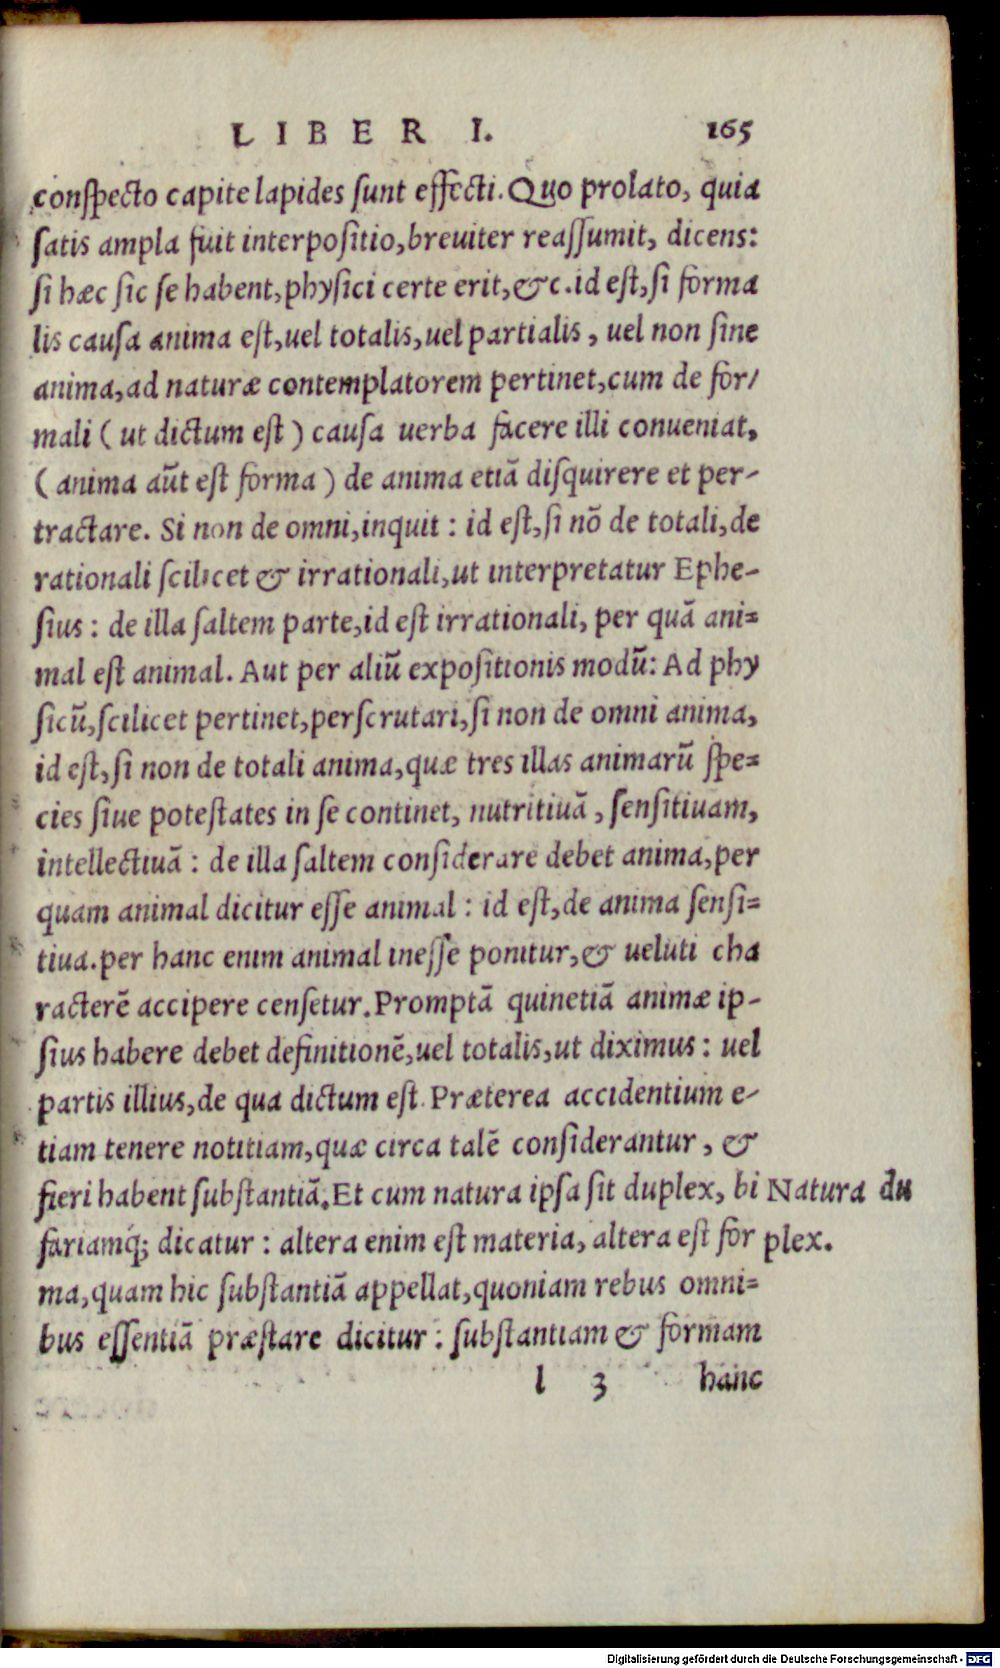 LIBER I. 165
conſpecto capite lapides ſunt effecti. Quo prolato, quia
ſatis ampla fuit interpoſitio, breuiter reaſſumit, dicens:
ſi hæc ſic ſe habent, phyſici certe erit, &c. id eſt, ſi forma
lis cauſa anima eſt, uel totalis, uel partialis, uel non ſine
anima, ad naturæ contemplatorem pertinet, cum de for/
mali (ut dictum eſt) cauſa uerba facere illi conueniat,
(anima aūt eſt forma) de anima etiā diſquirere et per-
tractare. Si non de omni, inquit: id eſt, ſi nō de totali, de
rationali ſcilicet & irrationali, ut interpretatur Ephe-
ſius: de illa ſaltem parte, id eſt irrationali, per quā ani=
mal eſt animal. Aut per aliū expoſitionis modū: Ad phy
ſicū, ſcilicet pertinet, perſcrutari, ſi non de omni anima,
id eſt, ſi non de totali anima, quæ tres illas animarū ſpe=
cies ſiue poteſtates in ſe continet, nutritiuā, ſenſitiuam,
intellectiuā: de illa ſaltem conſiderare debet anima, per
quam animal dicitur eſſe animal: id eſt, de anima ſenſi=
tiua. per hanc enim animal ineſſe ponitur, & ueluti cha
racterē accipere cenſetur. Promptā quinetiā animæ ip-
ſius habere debet definitionē, uel totalis, ut diximus: uel
partis illius, de qua dictum eſt. Præterea accidentium e-
tiam tenere notitiam, quæ circa talē conſiderantur, &
fieri habent ſubſtantiā. Et cum natura ipſa ſit duplex, bi
fariamq́; dicatur: altera enim eſt materia, altera eſt for
ma, quam hic ſubſtantiā appellat, quoniam rebus omni=
bus eſſentiā præſtare dicitur: ſubſtantiam & formam
l 3 hanc
Natura du
plex.
Digitalisierung gefördert durch die Deutsche Forschungsgemeinschaft - DFG